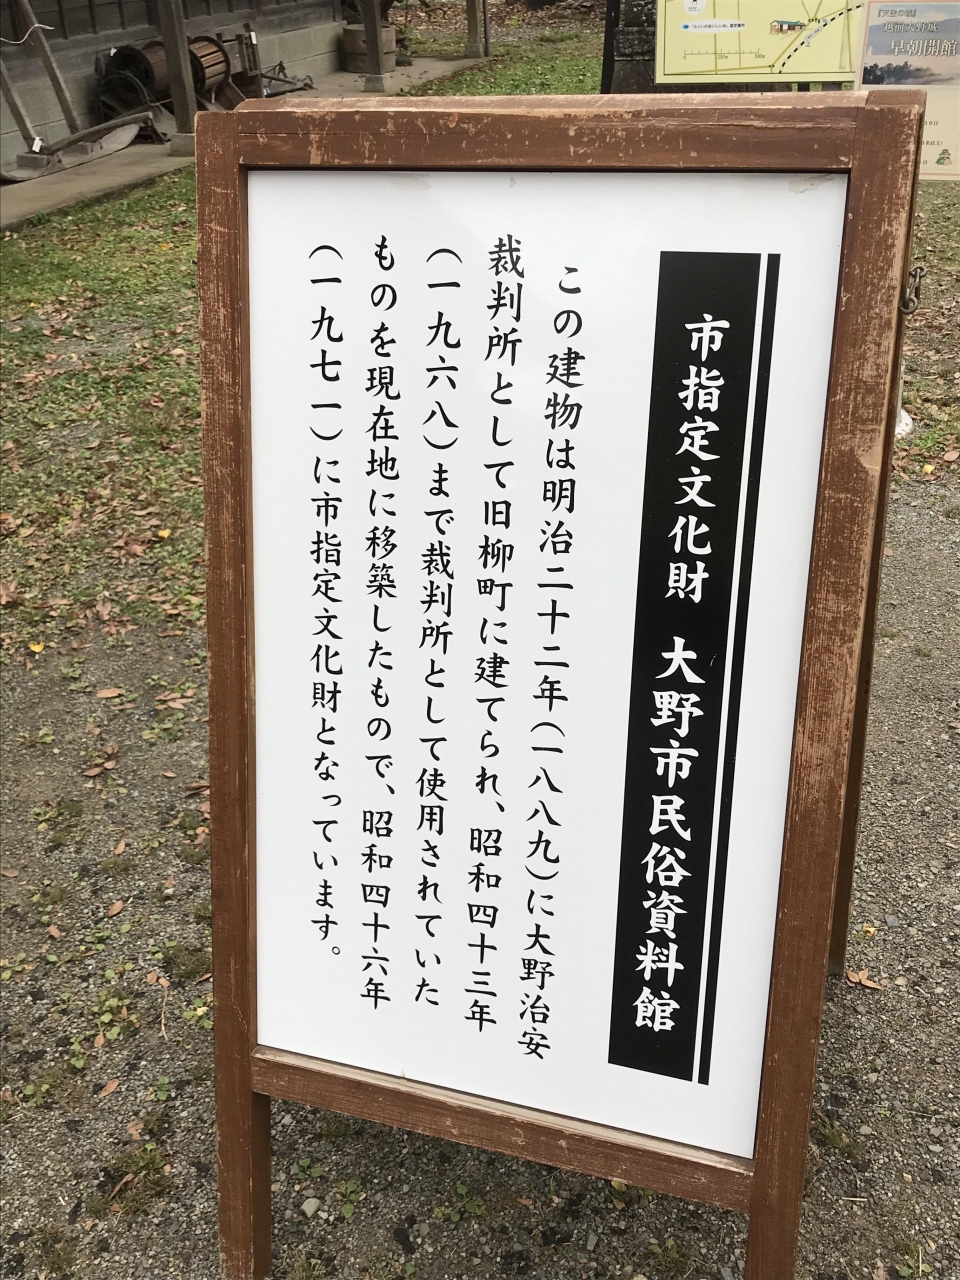 市指定文化財 大野市民俗資料館
この建物は明治二十二年(一八八九)に大野治安
裁判所として旧柳町に建てられ、昭和四十三年
(一九六八)まで裁判所として使用されていた
ものを現在地に移築したもので、昭和四十六年
(一九七一)に市指定文化財となっています。
『天空の城』
越前大野城
早朝開館